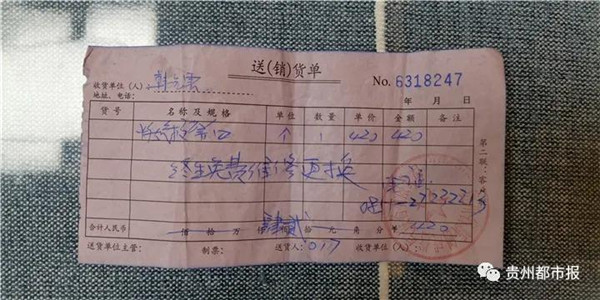 送(销)货单
收货单位(人)
No. 6318247
地址、电话:
年 月 日
货号 名称及规格 单位 数量 单价 金额 备注
个 1 420 420
终生免费维修更换
合计人民币 佰 拾 万 仟 佰 拾 元 角 分 420
送货单位主管: 制票: 送货人: 017 收货单位(人):
第二联:客户
贵州都市报